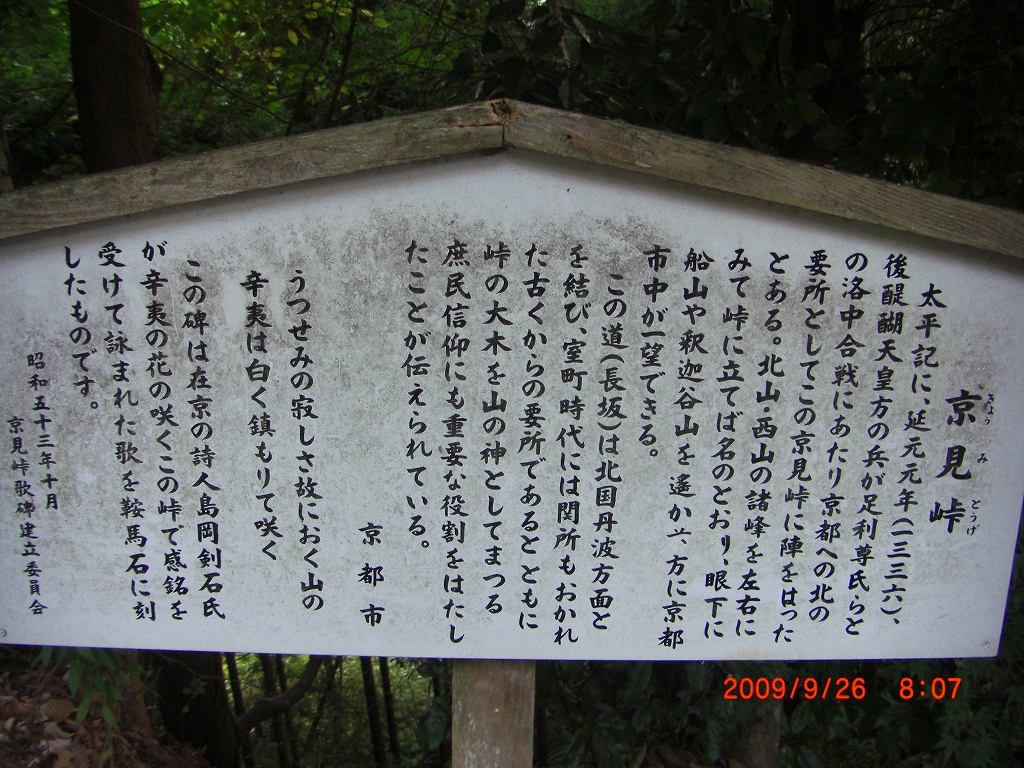 京見峠
きょうみとうげ
太平記に、延元元年(一三三六)、
後醍醐天皇方の兵が足利尊氏らと
の洛中合戦にあたり京都への北の
要所としてこの京見峠に陣をはった
とある。北山・西山の諸峰を左右に
みて峠に立てば名のとおり、眼下に
船山や釈迦谷山を遥か 方に京都
市中が一望できる。
この道(長坂)は北国丹波方面と
を結び、室町時代には関所もおかれ
た古くからの要所であるとともに
峠の大木を山の神としてまつる
庶民信仰にも重要な役割をはたし
たことが伝えられている。
京都市
うつせみの寂しさ故におく山の
辛夷は白く鎮もりて咲く
この碑は在京の詩人島岡剣石氏
が辛夷の花の咲くこの峠で感銘を
受けて詠まれた歌を鞍馬石に刻
したものです。
昭和五十三年十月
京見峠歌碑建立委員会
2009/9/26 8:07